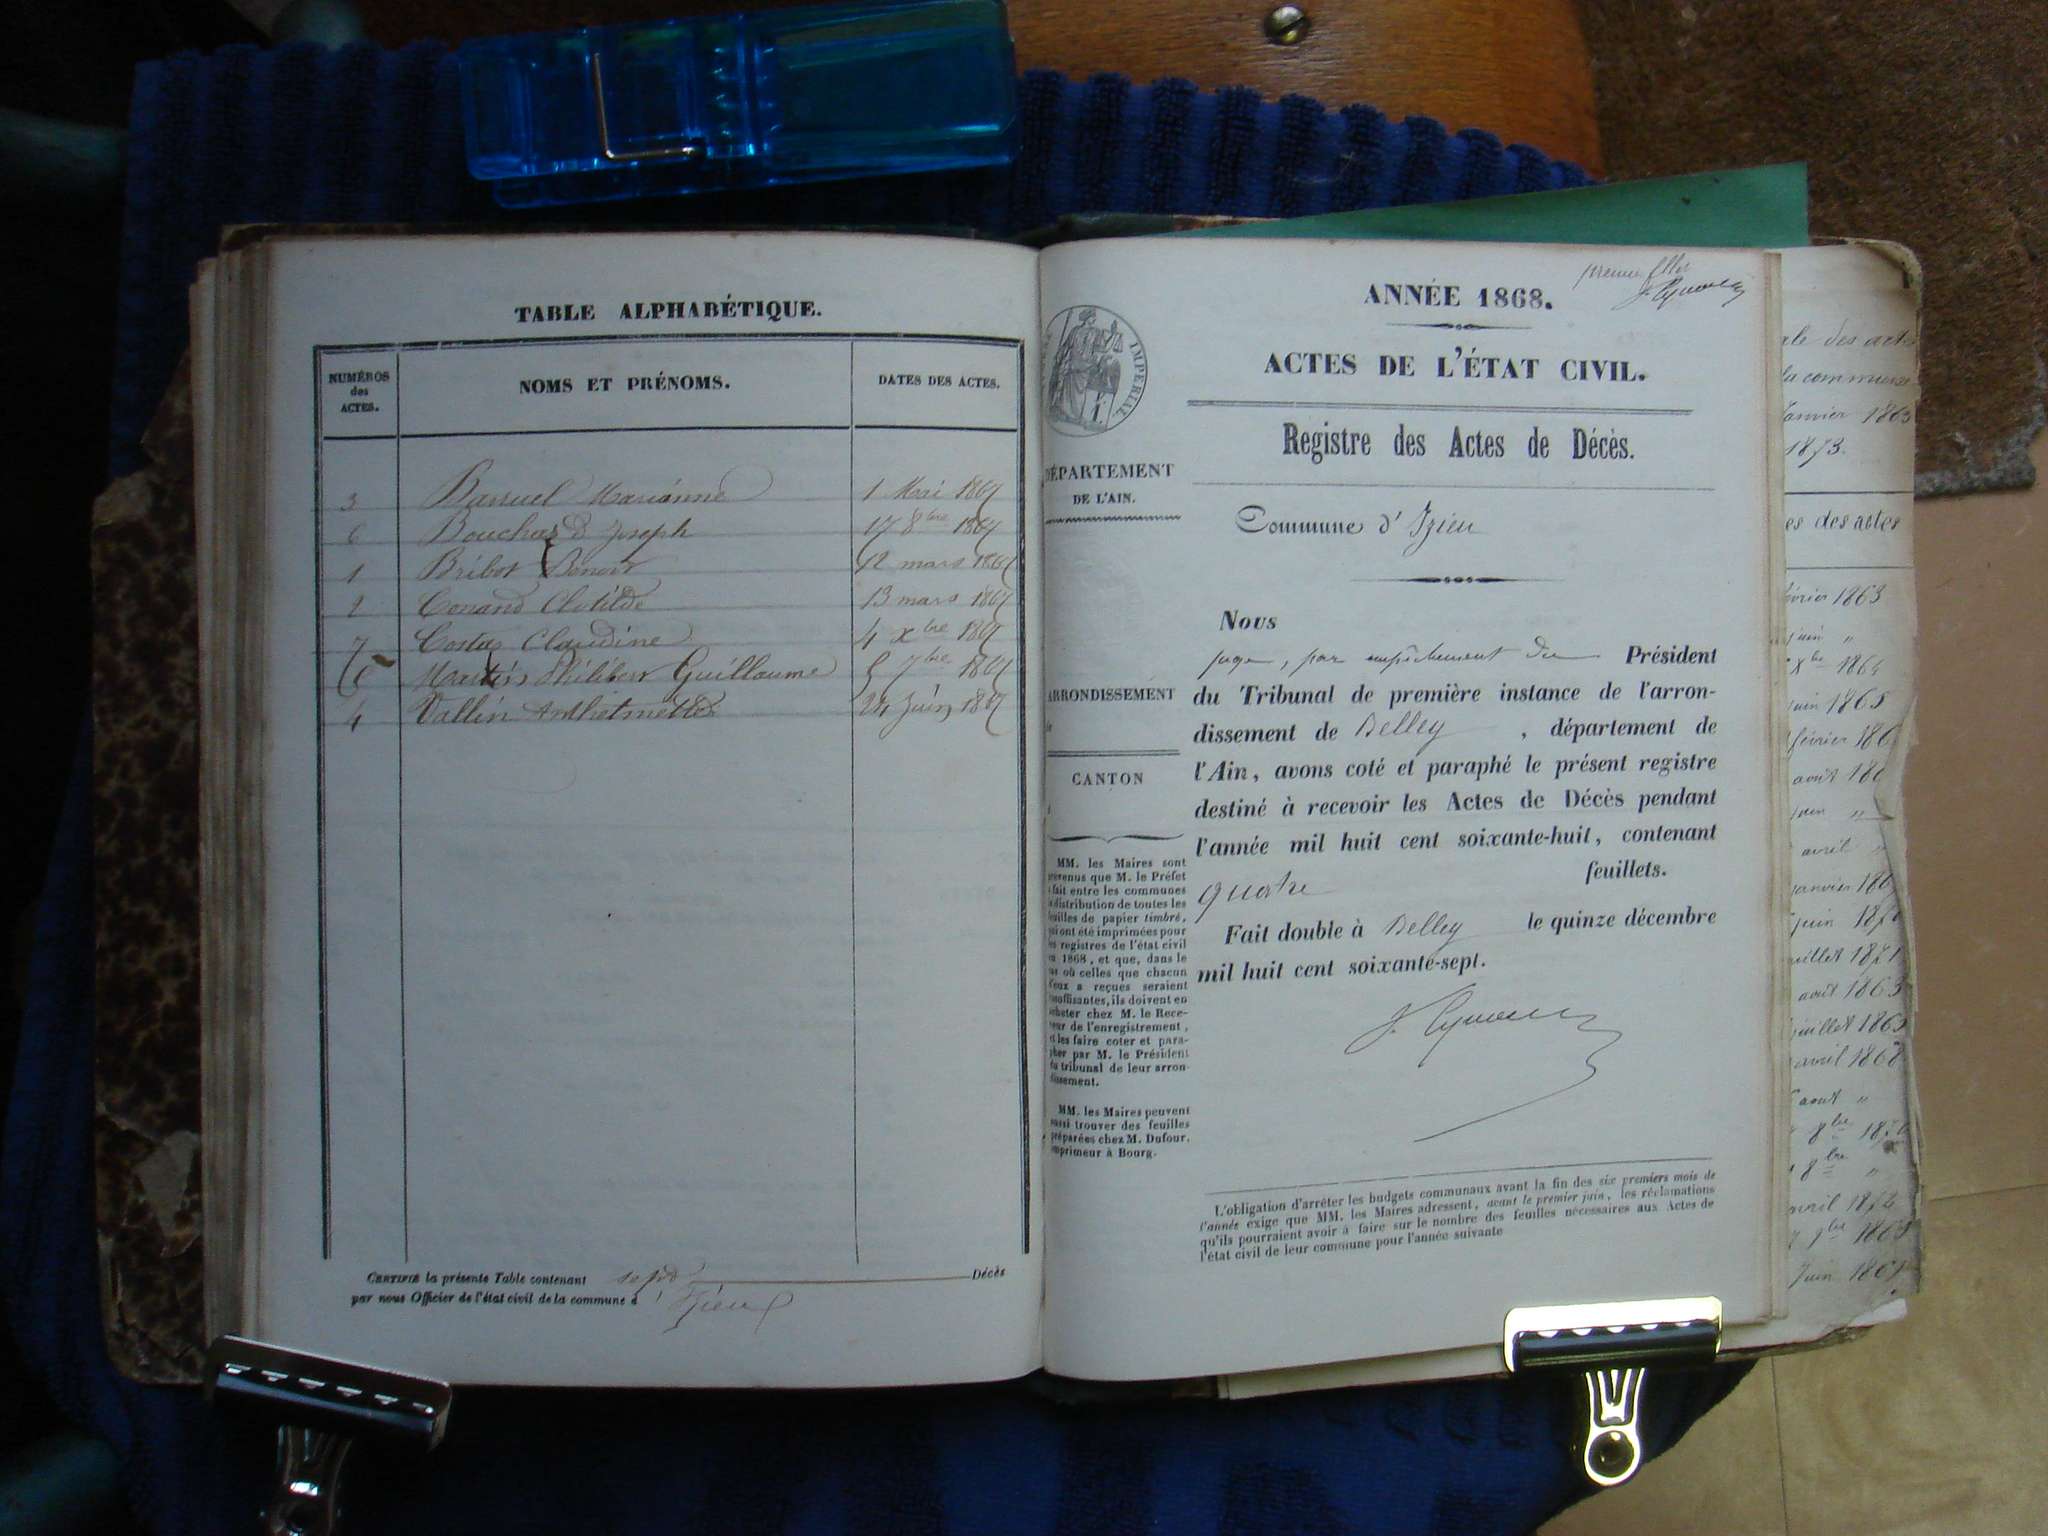 TABLE ALPHABÉTIQUE.
NUMÉROS
des
ACTES.
NOMS ET PRÉNOMS.
DATES DES ACTES.
3 Barruel Marianne 1 Mai 1867
6 Bouchard Joseph 17 8bre 1867
1 Bribot Benoit 12 mars 1867
2 Conand Clotilde 13 mars 1867
7 Costaz Claudine 4 xbre 1867
Martin Philibert Guillaume 5 7bre 1867
4 Vallin Anthelmette 24 juin 1867
CERTIFIÉ la présente Table contenant sept Décès
par nous Officier de l'état civil de la commune d'Izieu
ANNÉE 1868.
ACTES DE L'ÉTAT CIVIL.
Registre des Actes de Décès.
IMPÉRIAL
DÉPARTEMENT
DE L'AIN.
Commune d'Izieu
Nous
juge, par empêchement du Président
du Tribunal de première instance de l'arron-
dissement de Belley, département de
l'Ain, avons coté et paraphé le présent registre
destiné à recevoir les Actes de Décès pendant
l'année mil huit cent soixante-huit, contenant
quatre feuillets.
Fait double à Belley le quinze décembre
mil huit cent soixante-sept.
ARRONDISSEMENT
CANTON
MM. les Maires sont
prévenus que M. le Préfet
fait entre les communes
distribution de toutes les
feuilles de papier timbré,
qui ont été imprimées pour
les registres de l'état civil
en 1868, et que, dans le
cas où celles que chacun
d'eux a reçues seraient
insuffisantes, ils doivent en
acheter chez M. le Rece-
veur de l'enregistrement,
et les faire coter et para-
pher par M. le Président
du tribunal de leur arron-
dissement.
MM. les Maires peuvent
aussi trouver des feuilles
préparées chez M. Dufour,
imprimeur à Bourg.
L'obligation d'arrêter les budgets communaux avant la fin des six premiers mois de
l'année exige que MM. les Maires adressent, avant le premier juin, les réclamations
qu'ils pourraient avoir à faire sur le nombre des feuilles nécessaires aux Actes de
l'état civil de leur commune pour l'année suivante
des actes
la commune
Janvier 1863
1873.
des actes
février 1863
juin "
xbre 1864
juin 1865
février 186
août 186
juin "
avril "
janvier 186
juin 187
juillet 1871
août 1863
juillet 1865
avril 1868
août "
8bre 187
8bre "
avril 1872
juin 186